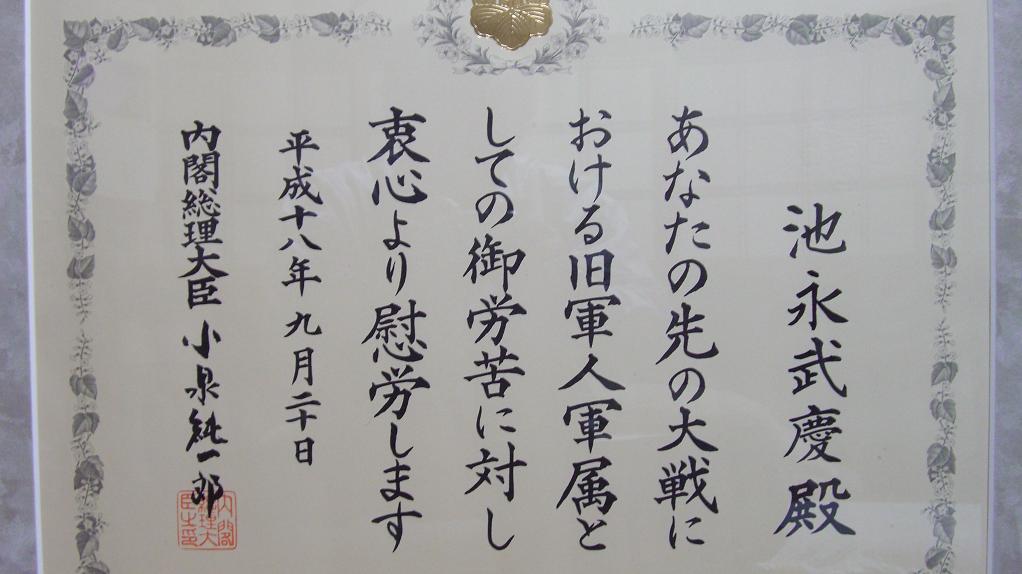 池永武慶殿
あなたの先の大戦に
おける旧軍人軍属と
しての御労苦に対し
衷心より慰労します
平成十八年九月二十日
内閣総理大臣 小泉純一郎
内閣総理大臣之印